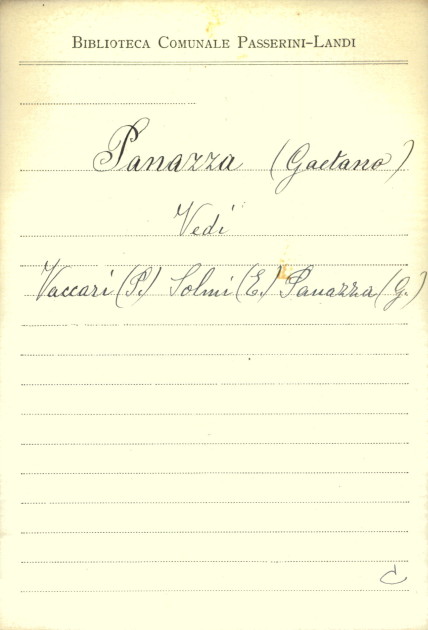 BIBLIOTECA COMUNALE PASSERINI-LANDI
Panazza (Gaetano)
Vedi
Vaccari (P.) Solmi (E.) Panazza (G.)
C